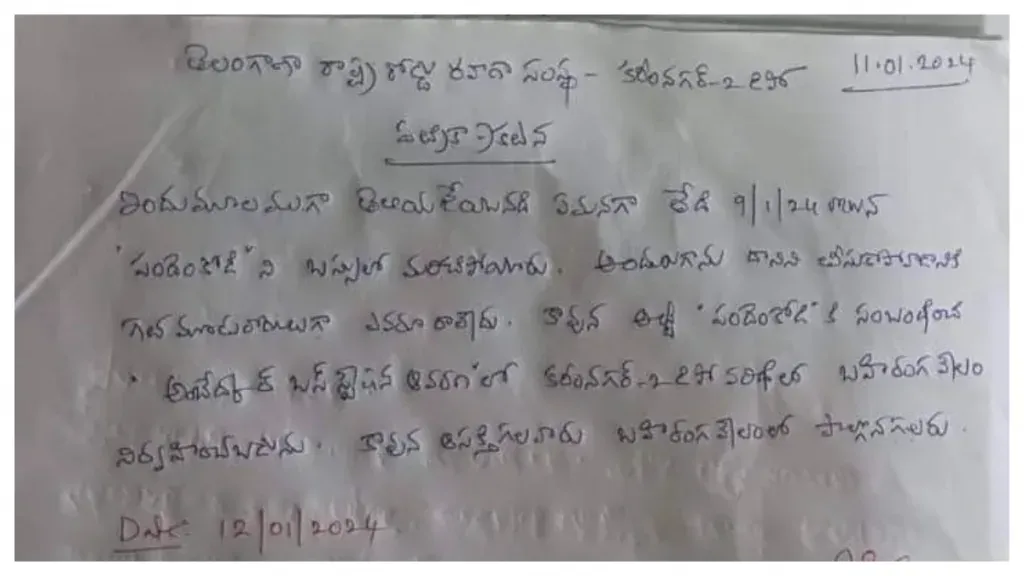 తెలంగాణా రాష్ట్ర రోడ్డు రవాణా సంస్థ - కరీంనగర్-2 డిపో 11.01.2024
పత్రికా ప్రకటన
ఇందుమూలముగా తెలియజేయునది ఏమనగా తేది 9/1/24 రోజున
"పందెంకోడి" ని బస్సులో మరచిపోయారు. అందులకుగాను దానిని తీసుకుపోవడానికి
గత మూడురోజులుగా ఎవరూ రాలేదు. కావున అట్టి "పందెంకోడి" కి సంబంధించి
" అంబేద్కర్ బస్ స్టేషన్ ఆవరణ"లో కరీంనగర్-2 డిపో పరిధిలో బహిరంగ వేలం
నిర్వహించబడును. కావున ఆసక్తిగలవారు బహిరంగ వేలంలో పాల్గొనగలరు.
Date: 12/01/2024